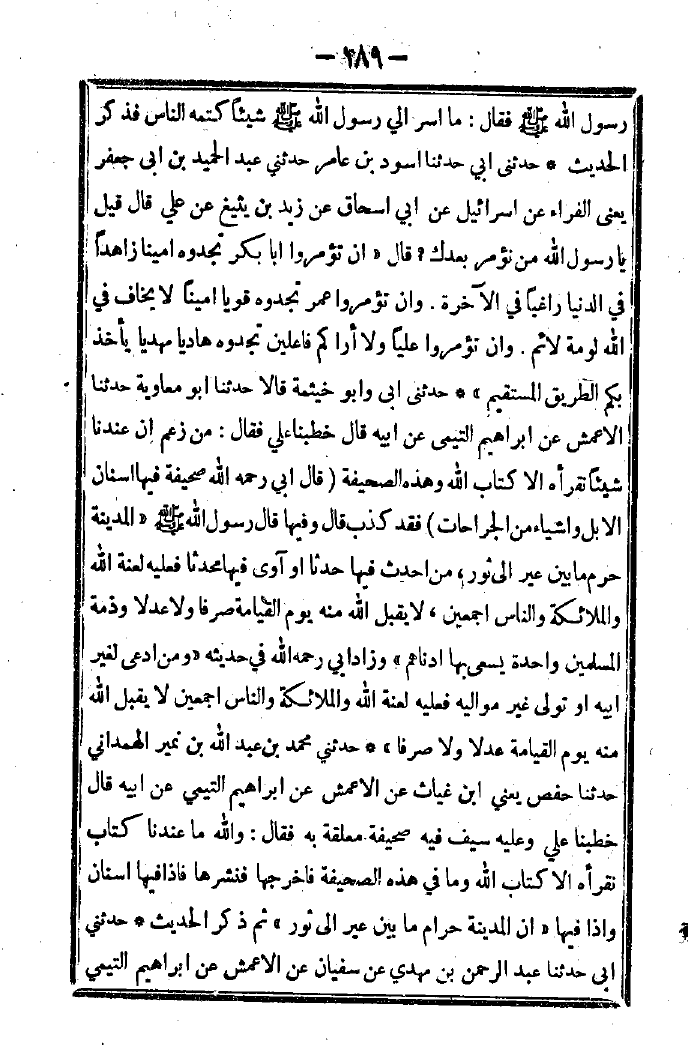 — ٣٨٩ —
رسول الله ﷺ فقال : ما اسر الي رسول الله ﷺ شيئاً كتمه الناس فذكر
الحديث * حدثني ابي حدثنا اسود بن عامر حدثني عبد الحميد بن ابى جعفر
يعنى الفراء عن اسرائيل عن ابي اسحاق عن زيد بن يثيغ عن علي قال قيل
يارسول الله من نؤمر بعدك ? قال « ان تؤمروا ابا بكر تجدوه امينا زاهداً
في الدنيا راغباً في الآخرة . وان تؤمروا عمر تجدوه قويا اميناً لا يخاف في
الله لومة لائم . وان تؤمروا علياً ولا أراكم فاعلين تجدوه هاديا مهديا يأخذ
بكم الطريق المستقيم » * حدثني ابى وابو خيثمة قالا حدثنا ابو معاوية حدثنا
الاعمش عن ابراهيم التيمى عن ابيه قال خطبنا علي فقال : من زعم ان عندنا
شيئاً نقرأه الا كتاب الله وهذه الصحيفة ( قال ابي رحمه الله صحيفة فيها اسنان
الابل واشياء من الجراحات ) فقد كذب قال وفيها قال رسول الله ﷺ « المدينة
حرم ما بين عير الى ثور ، من احدث فيها حدثا او آوى فيها محدثا فعليه لعنة الله
والملائكة والناس اجمعين ، لا يقبل الله منه يوم القيامة صرفا ولا عدلا وذمة
المسلمين واحدة يسعى بها ادناهم » وزاد ابي رحمه الله في حديثه « ومن ادعى لغير
ابيه او تولى غير مواليه فعليه لعنة الله والملائكة والناس اجمعين لا يقبل الله
منه يوم القيامة عدلا ولا صرفا » * حدثني محمد بن عبد الله بن نمير الهمداني
حدثنا حفص يعني ابن غياث عن الاعمش عن ابراهيم التيمي عن ابيه قال
خطبنا علي وعليه سيف فيه صحيفة معلقة به فقال : والله ما عندنا كتاب
نقرأه الا كتاب الله وما في هذه الصحيفة فاخرجها فنشرها فاذا فيها اسنان
واذا فيها « ان المدينة حرام ما بين عير الى ثور » ثم ذكر الحديث * حدثني
ابى حدثنا عبد الرحمن بن مهدي عن سفيان عن الاعمش عن ابراهيم التيمي